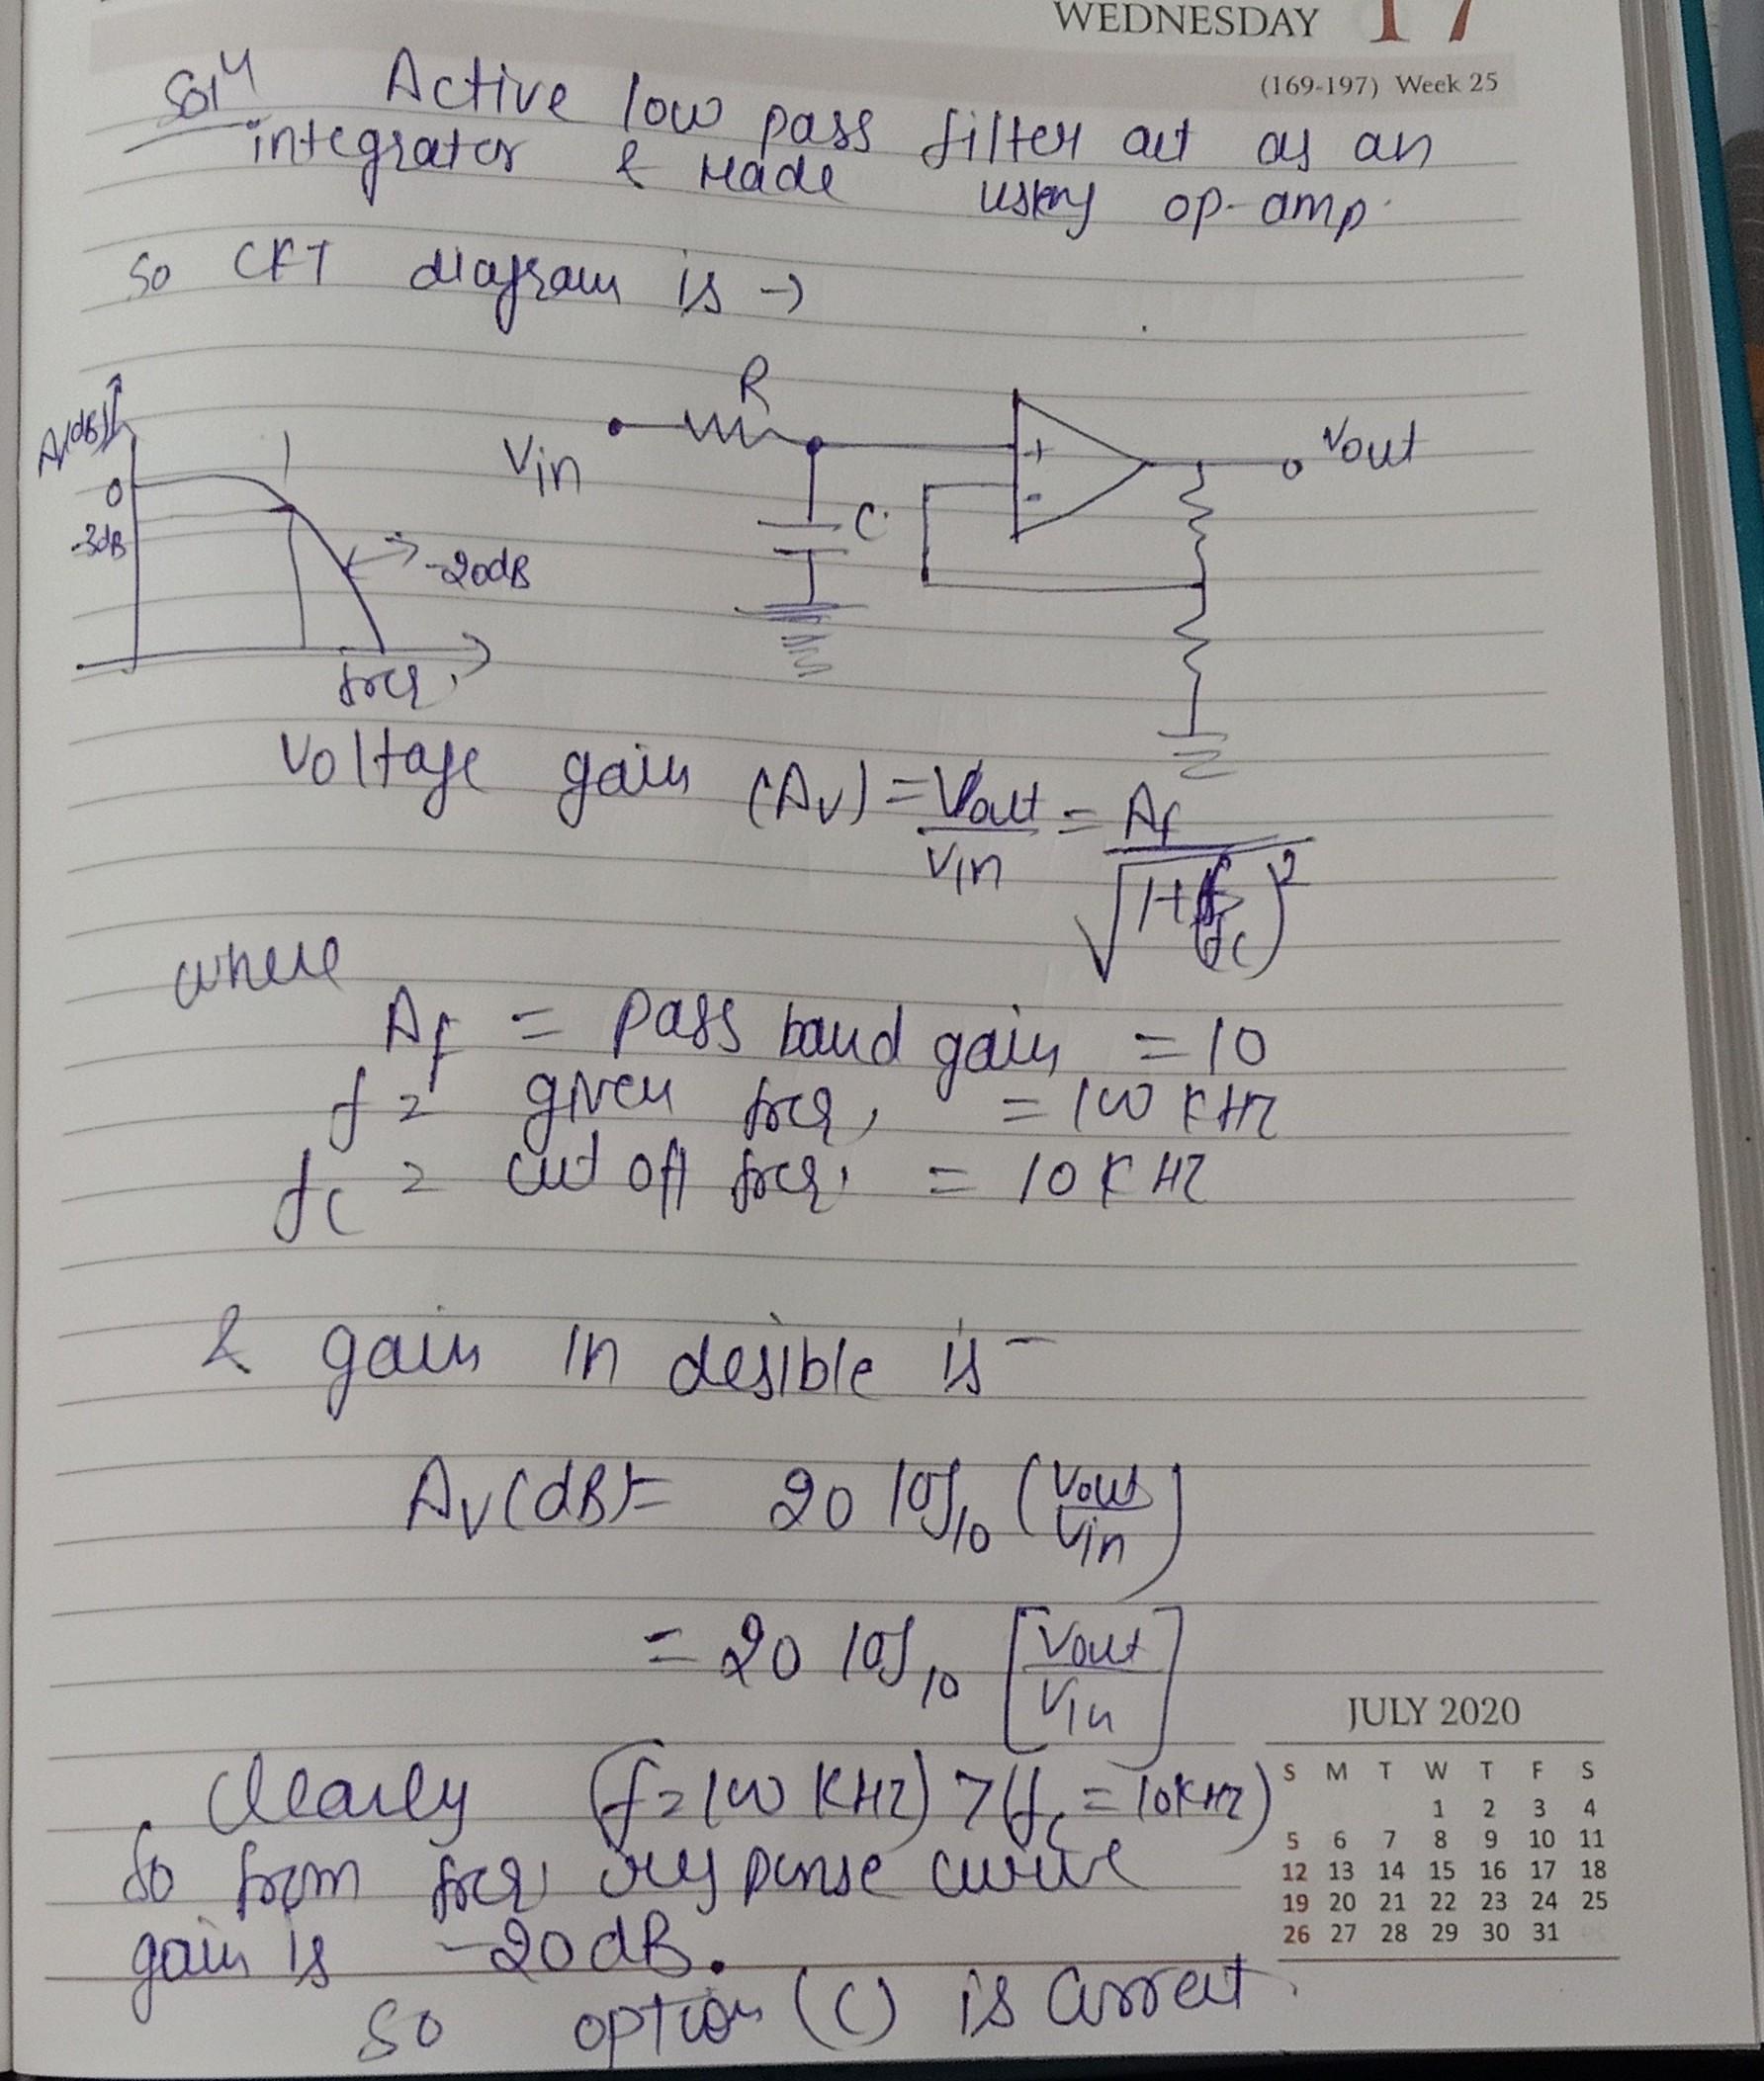 WEDNESDAY 17
(169-197) Week 25
Solⁿ Active low pass filter act as an
integrator & made using op-amp.
So CKT diagram is →
A(dB)
0
-3dB
-20dB
freq.
R
Vin
C
+
-
Vout
Voltage gain (Av) = Vout/Vin = Af/√1+(f/fc)²
where
Af = pass band gain = 10
f = given freq, = 100 KHZ
fc = cut off freq. = 10 KHZ
& gain in desible is -
Av(dB) = 20 log₁₀ (Vout/Vin)
= 20 log₁₀ [Vout/Vin]
Clearly (f = 100 KHZ) > (fc = 10KHZ)
So from freq. response curve
gain is -20dB.
So option (C) is correct.
JULY 2020
S M T W T F S
1 2 3 4
5 6 7 8 9 10 11
12 13 14 15 16 17 18
19 20 21 22 23 24 25
26 27 28 29 30 31